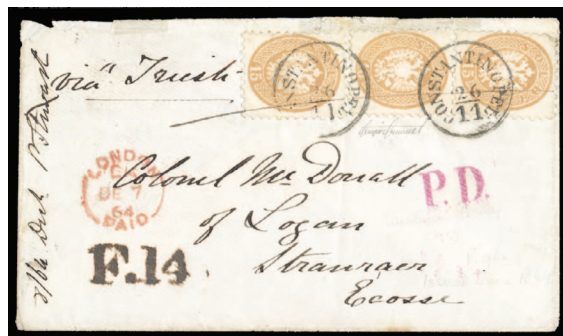 via Trieste
CONSTANTINOPEL
26
11
CONSTANTINOPEL
26
11
15
15
LONDON
DE 7
64
PAID
Colonel McDouall
of Logan
Stranraer
Ecosse
P.D.
F.14.